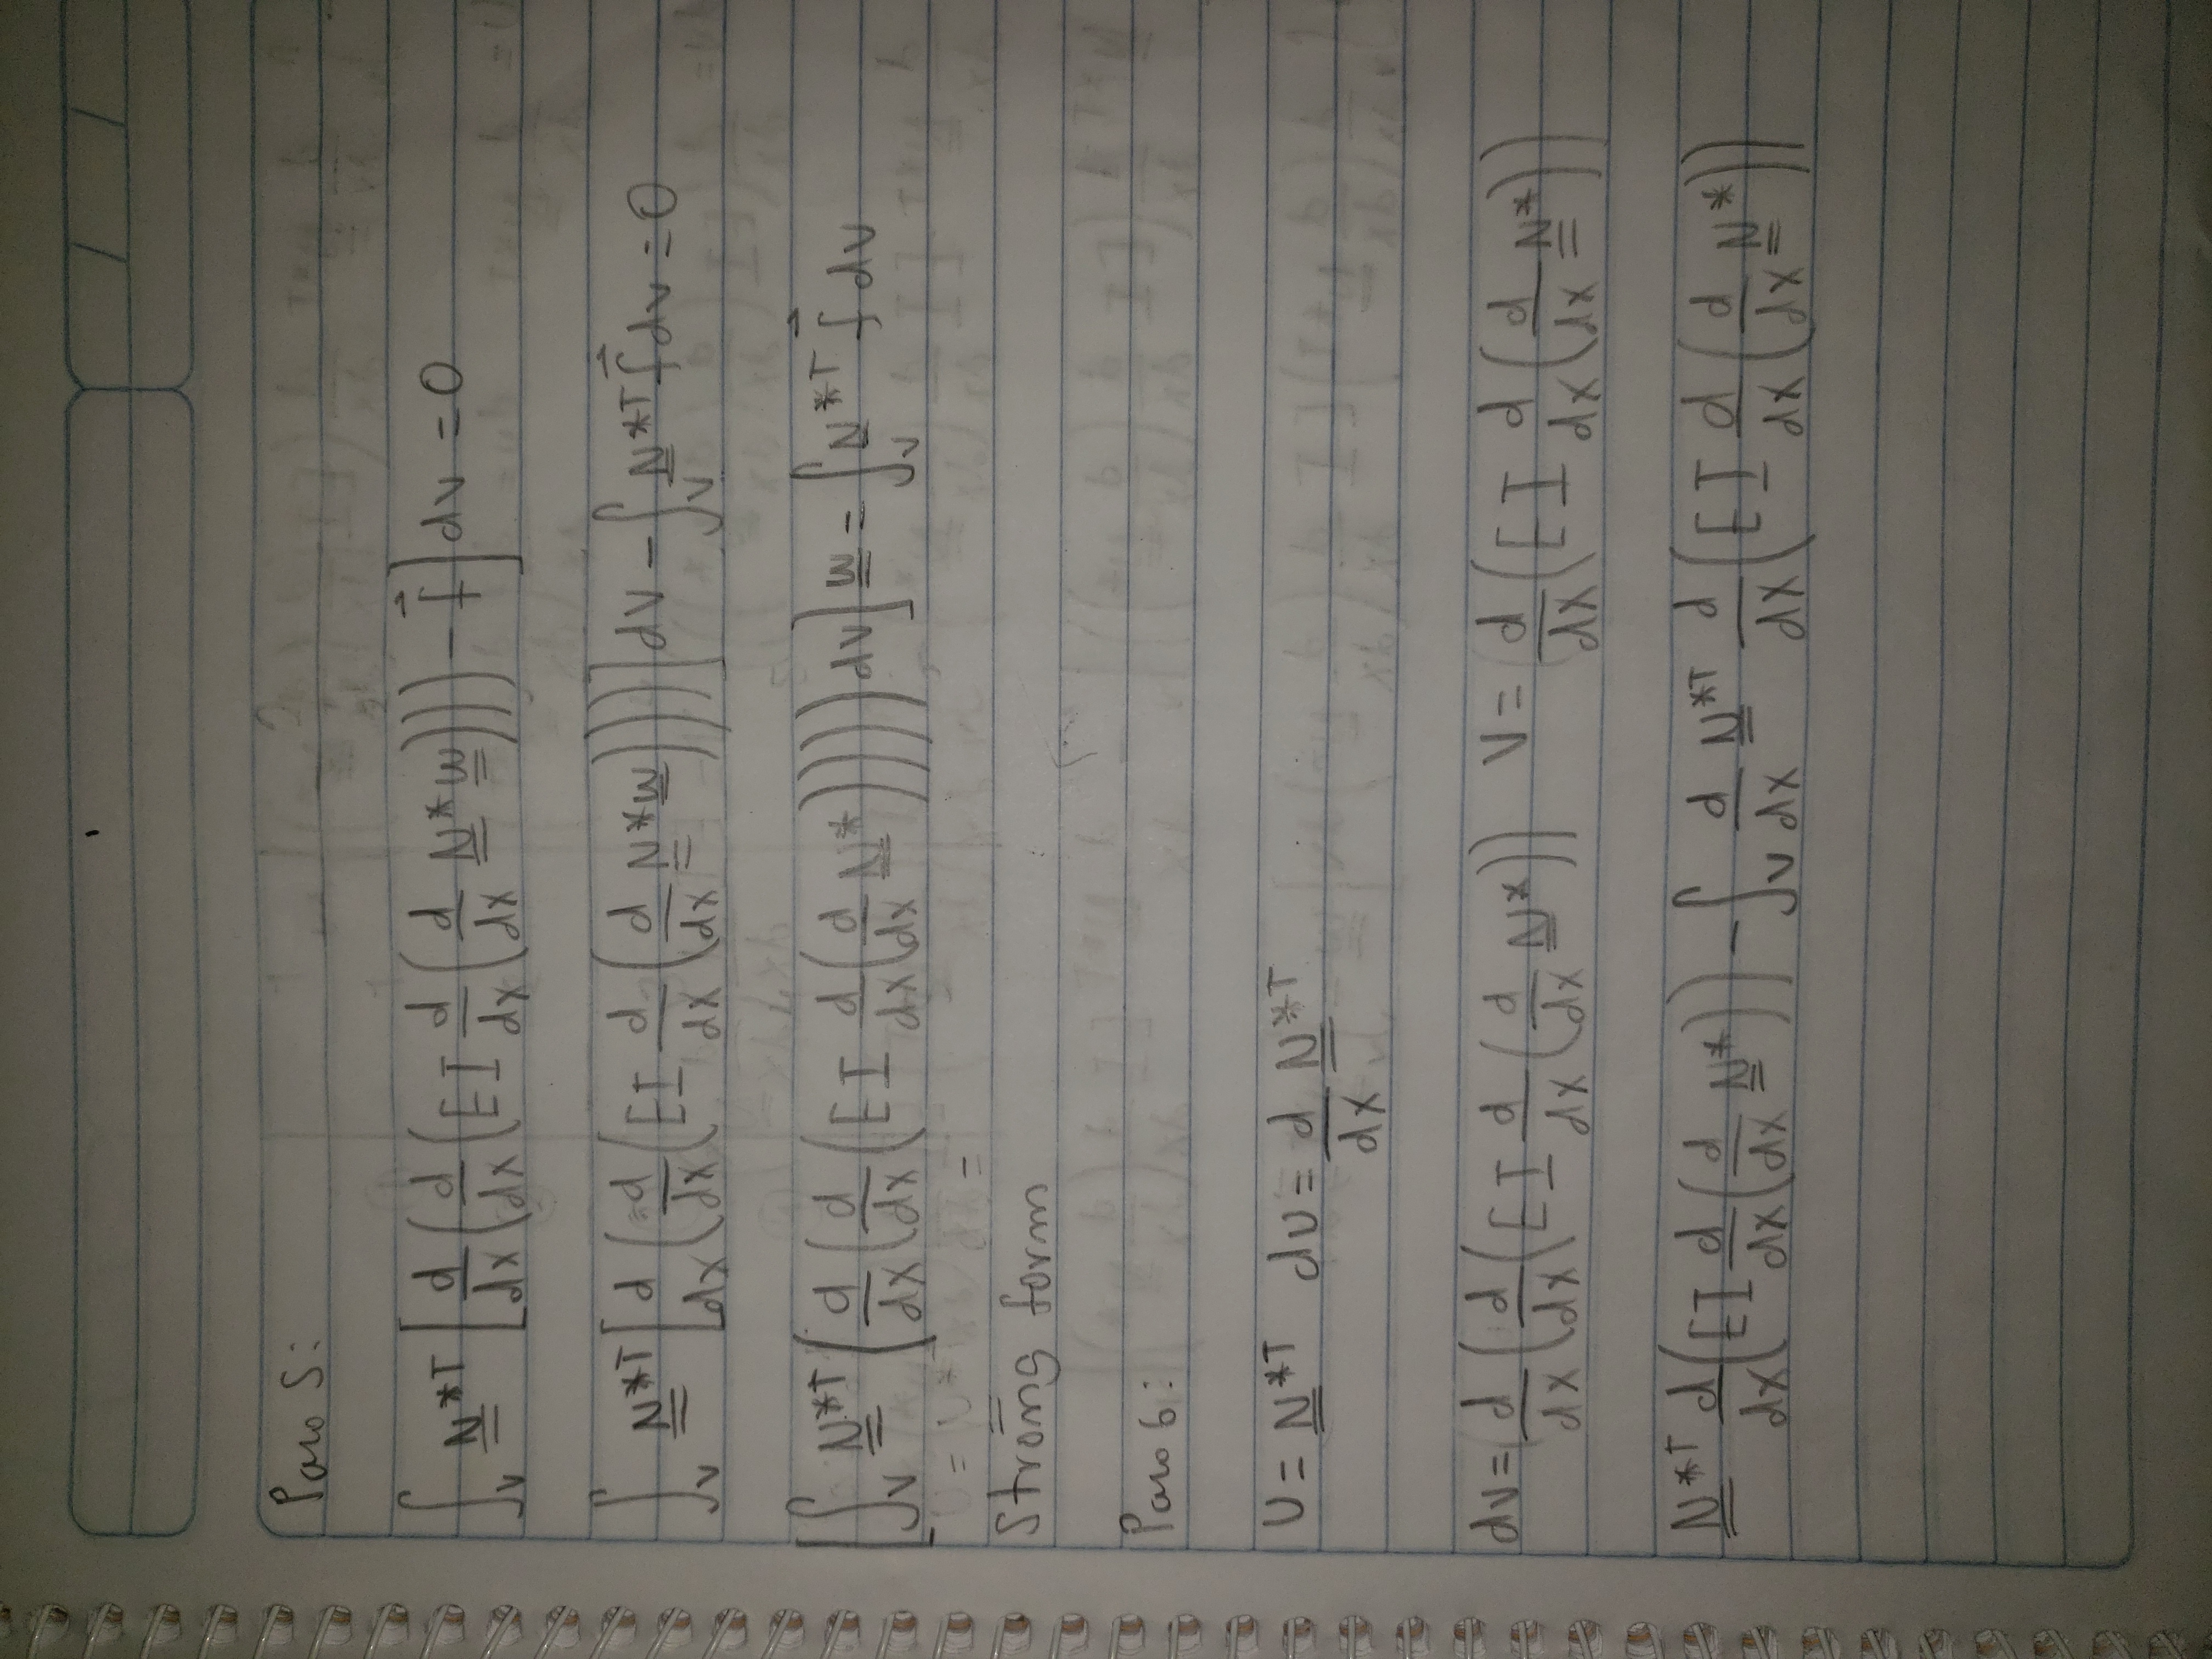 Paso 5:
∫_V N̳*ᵀ [d/dx (d/dx (EI d/dx (d/dx N̳* w̳))) − f⃗] dV = 0
∫_V N̳*ᵀ [d/dx (d/dx (EI d/dx (d/dx N̳* w̳)))] dV − ∫_V N̳*ᵀ f⃗ dV = 0
[∫_V N̳*ᵀ (d/dx (d/dx (EI d/dx (d/dx N̳*)))) dV] w̳ = ∫_V N̳*ᵀ f⃗ dV
Strong form
Paso 6:
U = N̳*ᵀ dU = d/dx N̳*ᵀ
dV = d/dx (d/dx (EI d/dx (d/dx N̳*)) V = d/dx (EI d/dx (d/dx N̳*))
N̳*ᵀ d/dx (EI d/dx (d/dx N̳*)) − ∫_V d/dx N̳*ᵀ d/dx (EI d/dx (d/dx N̳*))